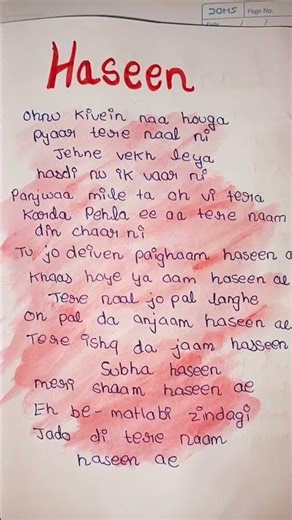 DOMS
Page No.
Date / /
Haseen
Ohnu Kivein naa houga
pyaar tere naal ni
Jehne vekh leya
hasdi nu ik vaar ni
Panjwaa mile ta oh vi tera
Karda Pehla ee aa tere naam
din chaar ni
Tu jo deiven paighaam haseen a
Khaas hoye ya aam haseen ae
Tere naal jo pal langhe
on pal da anjaam haseen ae
Tere ishq da jaam hasseen
Subha haseen
meri shaam haseen ae
Eh be-matlabi zindagi
Jado di tere naam
haseen ae